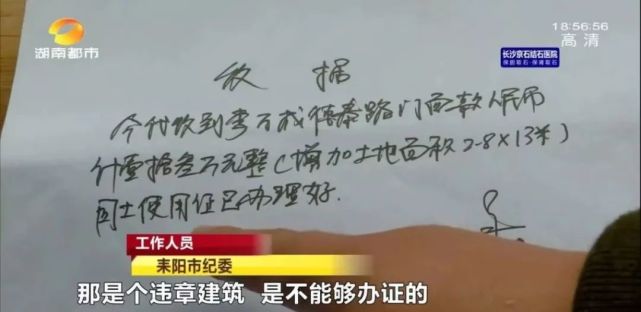 湖南都市
18:56:56
高清
长沙京石结石医院
收 据
今代收到李万 德泰路门面款人民币
计壹拾叁万元整(增加土地面积2.8×13米)
国土使用证已办理好.
工作人员
耒阳市纪委
那是个违章建筑 是不能够办证的